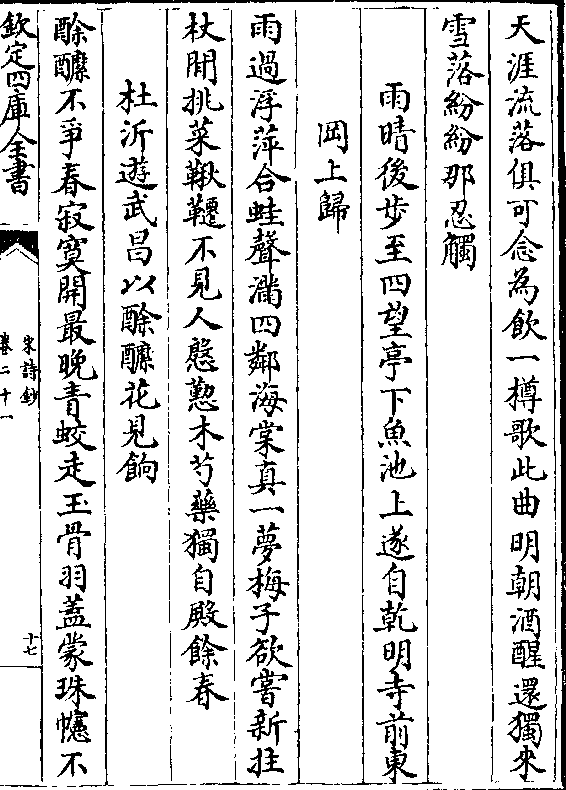 天涯流落俱可念為飲一樽歌此曲明朝酒醒還獨來
雪落紛紛那忍觸
雨晴後步至四望亭下魚池上遂自乾明寺前東
岡上歸
雨過浮萍合蛙聲滿四鄰海棠真一夢梅子欲嘗新拄
杖閒挑菜鞦韆不見人慇懃木芍藥獨自殿餘春
杜沂遊武昌以酴醿花見餉
酴醿不爭春寂寞開最晚青蛟走玉骨羽蓋蒙珠幰不
欽定四庫全書
宋詩鈔
卷二十一
十七